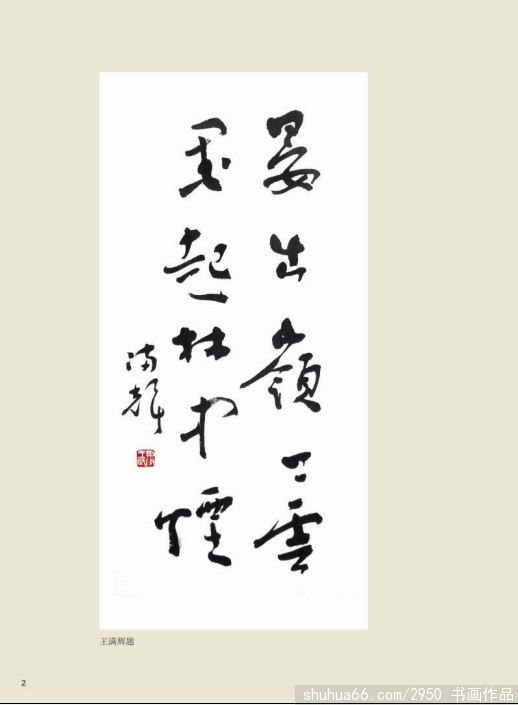 晏出嶺雲
夙起林中煙
满輝
王满辉题
2
shuhua66.com/2950 书画作品